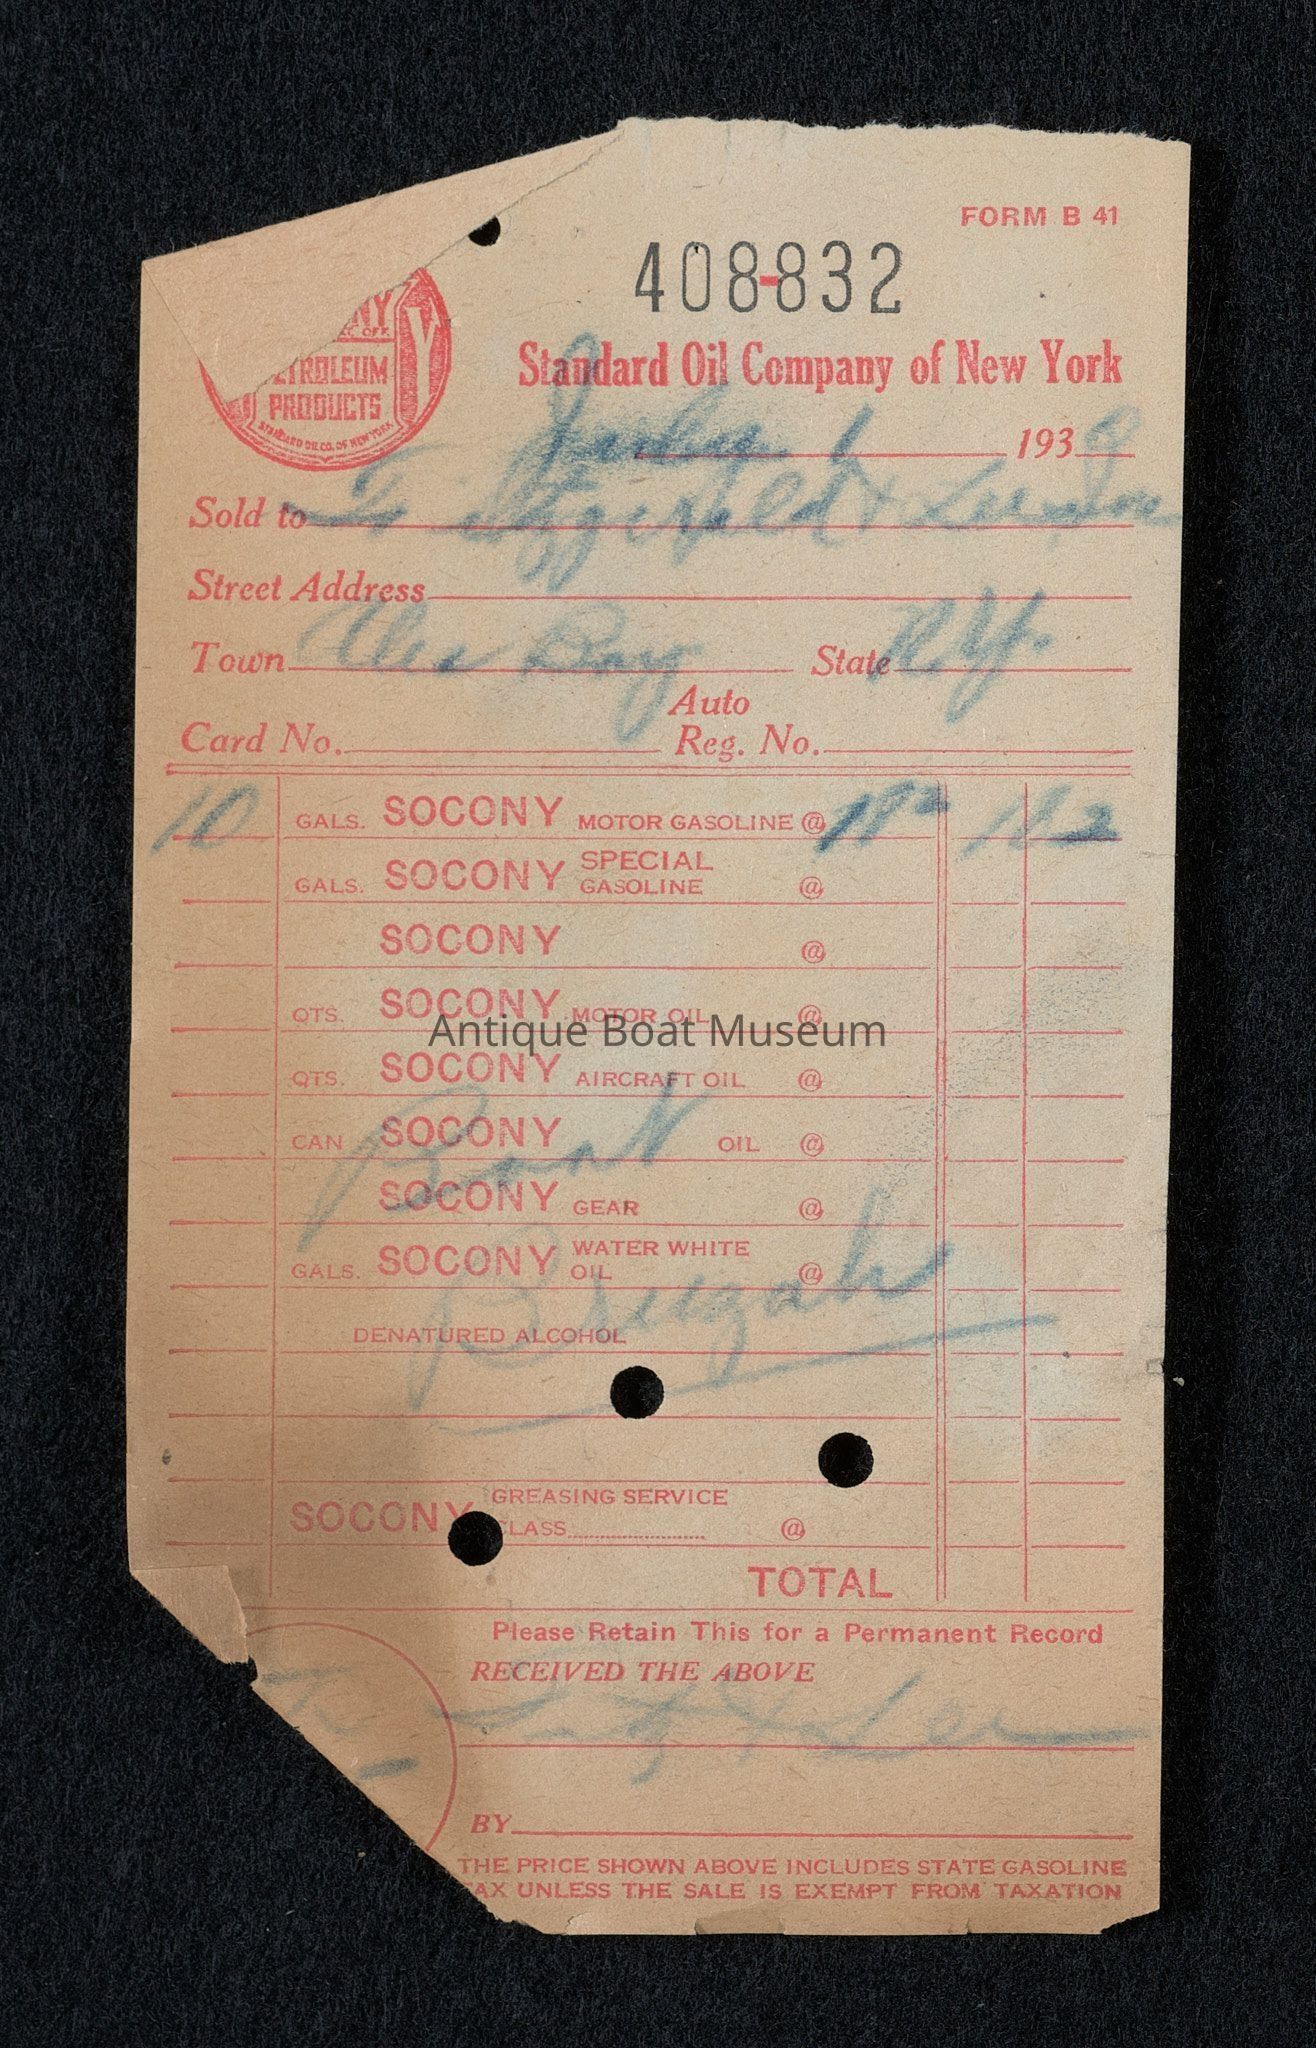 FORM B 41
408-832
NY
PETROLEUM
PRODUCTS
STANDARD OIL CO. OF NEW YORK
Standard Oil Company of New York
July 1 193
Sold to Fitzgerald & Lee
Street Address
Town Alex Bay State N.Y.
Auto
Card No. Reg. No.
10 GALS. SOCONY MOTOR GASOLINE @ 18²
GALS. SOCONY SPECIAL GASOLINE @
SOCONY @
QTS. SOCONY MOTOR OIL @
Antique Boat Museum
QTS. SOCONY AIRCRAFT OIL @
CAN SOCONY OIL @
Boat
SOCONY GEAR @
GALS. SOCONY WATER WHITE OIL @
DENATURED ALCOHOL
SOCONY GREASING SERVICE
CLASS @
TOTAL
Please Retain This for a Permanent Record
RECEIVED THE ABOVE
Fitz & Lee
BY
THE PRICE SHOWN ABOVE INCLUDES STATE GASOLINE
TAX UNLESS THE SALE IS EXEMPT FROM TAXATION